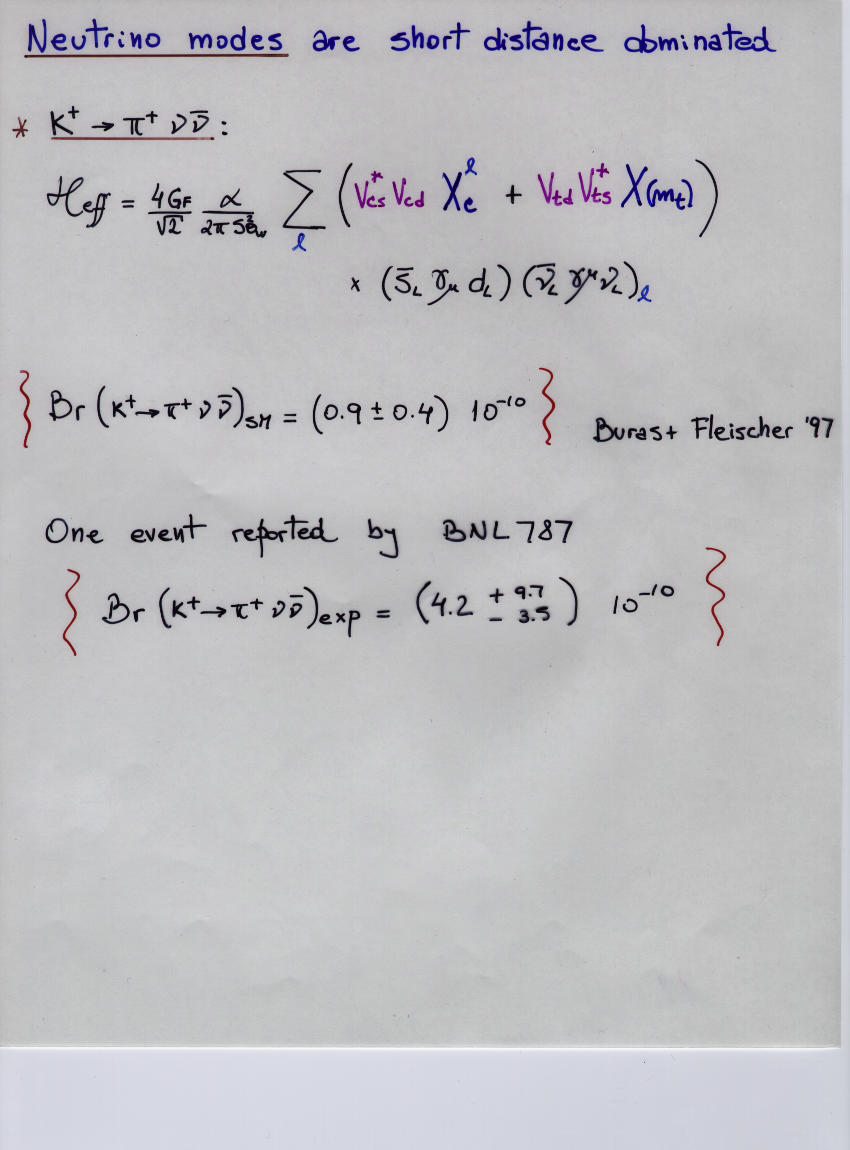 Neutrino modes are short distance dominated
* K⁺ → π⁺ ν ν̄ :
ℋeff = 4GF/√2 α/(2π sθ²w) Σ_ℓ ( V*cs Vcd X_c^ℓ + Vtd V*ts X(mt) )
× ( s̄_L γ_μ d_L ) ( ν̄_L γ^μ ν_L )_ℓ
Br (K⁺→π⁺ ν ν̄)_SM = (0.9 ± 0.4) 10⁻¹⁰
Buras + Fleischer '97
One event reported by BNL 787
Br (K⁺→π⁺ ν ν̄)_exp = (4.2 + 9.7 − 3.5) 10⁻¹⁰